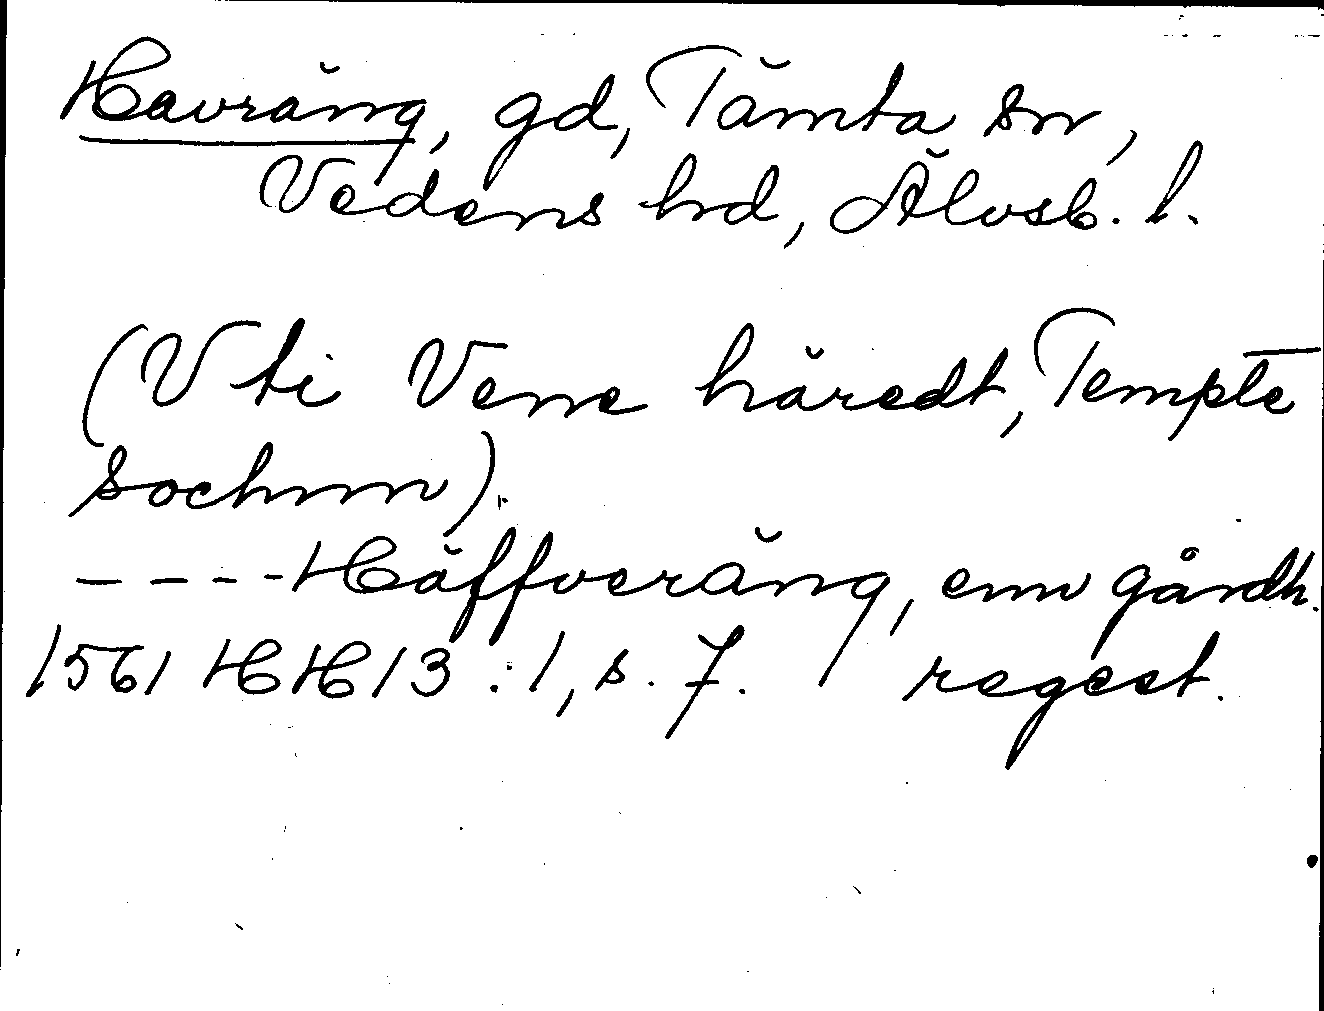 Havräng, gd, Tämta sn,
Vedens hd, Älvsb. l.
(Vti Vene häredt, Tempte
sochnn).
----Häffveräng, enn gårdh.
1561 HH 13:1, s. 7. regest.